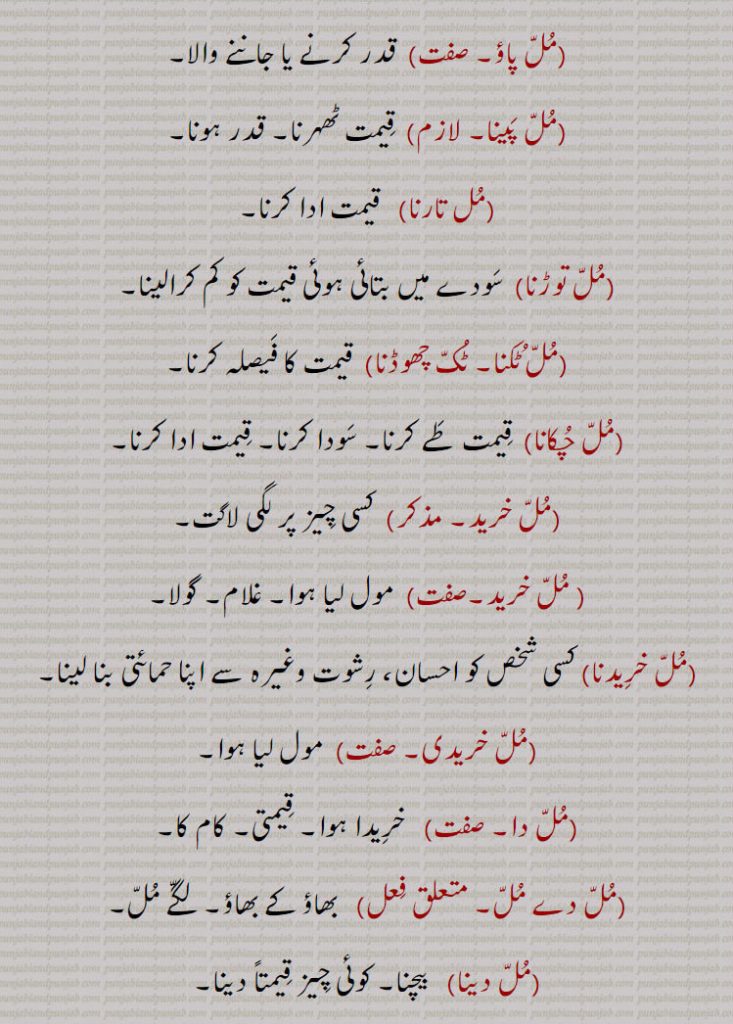 (مُلّ پاؤ۔ صفت) قدر کرنے یا جاننے والا۔
(مُلّ پَینا۔ لازم) قِیمت ٹھہرنا۔ قدر ہونا۔
(مُل تارنا) قیمت ادا کرنا۔
(مُلّ توڑنا) سَودے میں بتائی ہوئی قیمت کو کم کرالینا۔
(مُلّ ٹُکنا۔ ٹُکّ چھوڈنا) قیمت کا فَیصلہ کرنا۔
(مُلّ چُکانا) قِیمت طَے کرنا۔ سَودا کرنا۔ قِیمت ادا کرنا۔
(مُلّ خرید۔ مذکر) کسی چِیز پر لگی لاگت۔
( مُلّ خرید۔صفت) مول لیا ہوا۔ غلام۔ گولا۔
(مُلّ خرِیدنا) کسی شخص کو احسان، رِشوت وغیرہ سے اپنا حمائتی بنا لینا۔
(مُلّ خریدی۔ صفت) مول لیا ہوا۔
(مُلّ دا۔ صفت) خرِیدا ہوا۔ قِیمتی۔ کام کا۔
(مُلّ دے مُلّ۔ متعلق فِعل) بھاؤ کے بھاؤ۔ لگّے مُلّ۔
(مُلّ دینا) بیچنا۔ کوئی چِیز قِیمتاً دینا۔